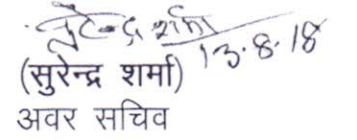 सुरेन्द्र शर्मा
13.8.18
(सुरेन्द्र शर्मा)
अवर सचिव